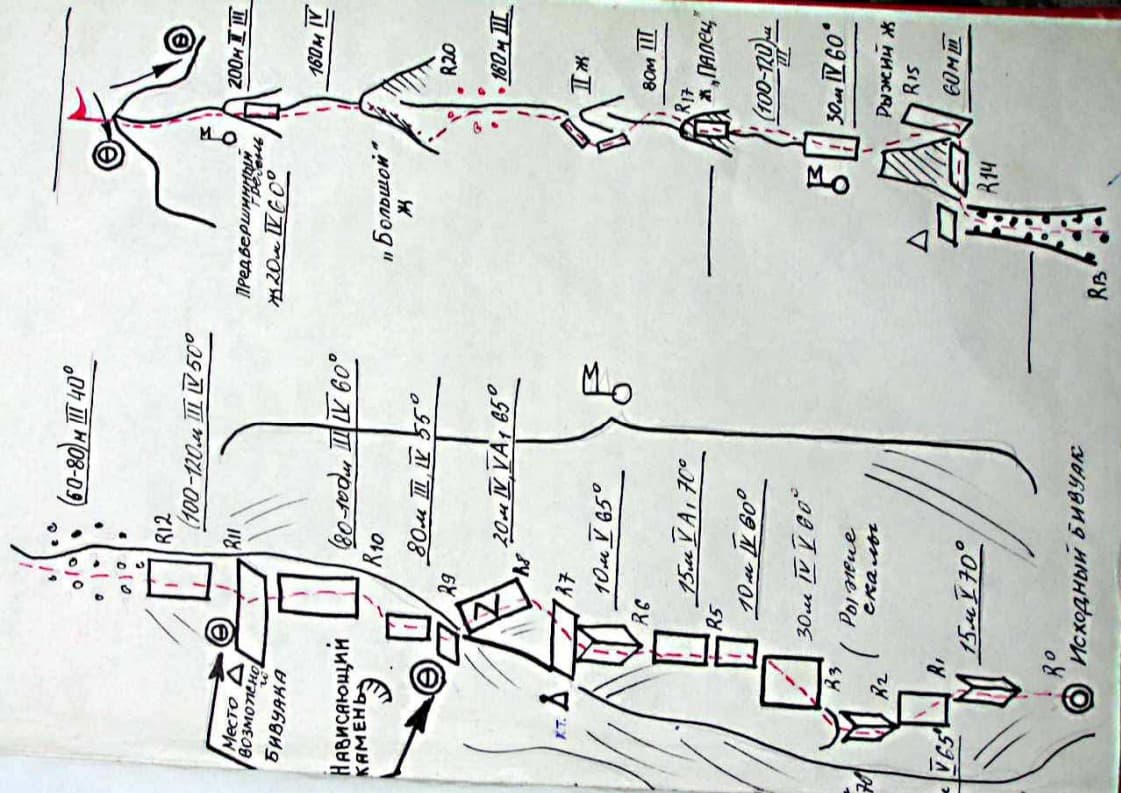 (60-80)м III 40°
R12
(100-120м III IV 50°
R11
Место
возможного
бивуака
(80-100)м III IV 60°
R10
Нависающий
камень
80м III, IV 55°
R9
20м IV, V A1 65°
R8
R7
К.Т.
10м V 65°
R6
15м V A1 70°
R5
10м IV 60°
30м IV V 60°
R3
(Рыжие
скалы
R2
V 65°
R1
15м V 70°
R0
Исходный бивуак
200м II III
Предвершинный
гребень
Ж 20м IV 60°
160м IV
„Большой"
Ж
R20
160м III
II Ж
80м III
R17
Ж „Палец"
(100-120)м
III
30м IV 60°
Рыжий Ж
R15
60м III
R14
R13